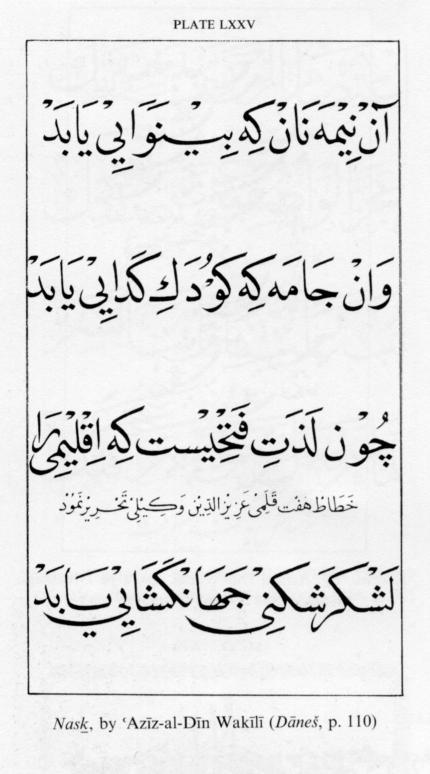 PLATE LXXV
آنْ نِيْمَه نَانْ كِه بِيْنَوَايِيْ يَابَدْ
وَانْ جَامَه كِه كَوْدَكِ گَدَايِيْ يَابَدْ
چُوْن لَذَتِ فَتْحِيْست كِه اِقْلِيْمِيْ رَا
خَطَاطْ هَفْت قَلَمِيْ عَزِيْزالدِيْنْ وَكِيْلِيْ تَحْرِيْر نَمُوْد
لَشْكَر شِكَنِيْ جَهَانكُشَايِيْ يَابَدْ
Nask, by ‘Azīz-al-Dīn Wakīlī (Dāneš, p. 110)